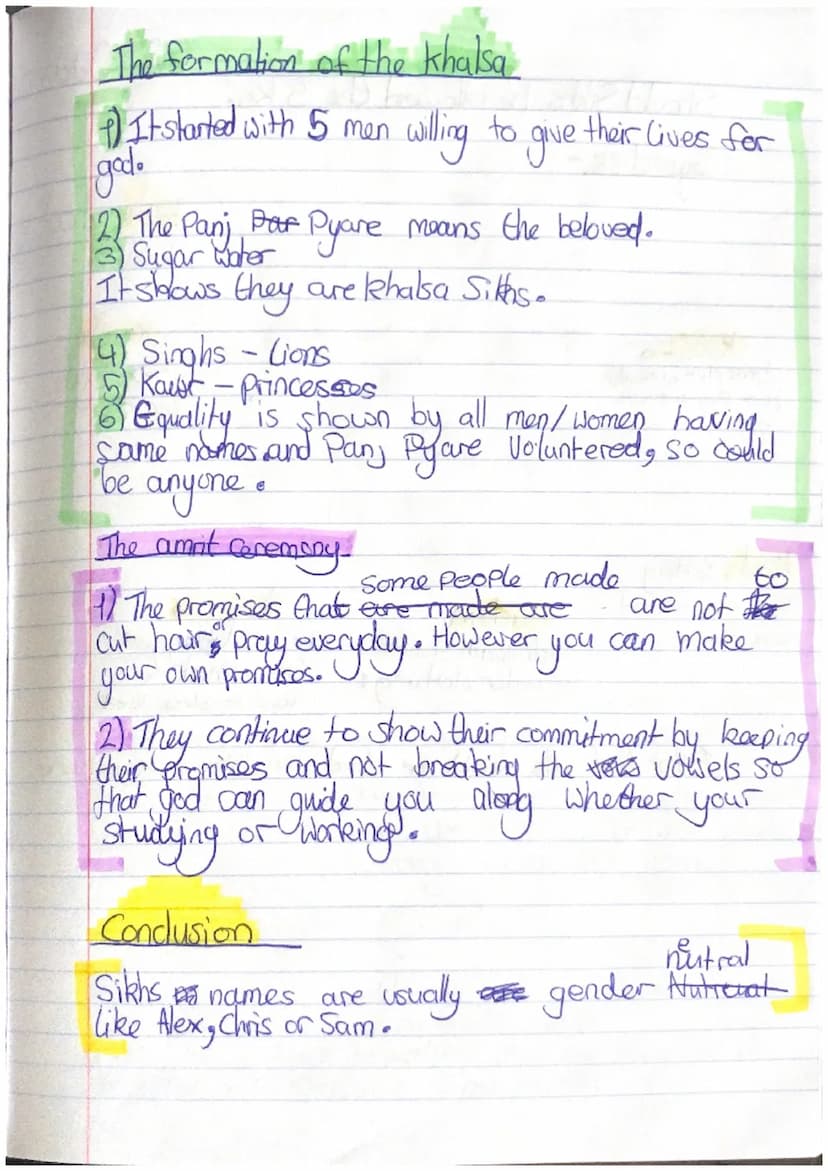 The formation of the Khalsa
1) It started with 5 men willing to give their lives for
god.
2) The Panj Pyare means the beloved.
3) Sugar Water
It shows they are khalsa Sikhs.
4) Singhs - Lions
5) Kaur - princesses
6) Equality is shown by all men/women having
same names and Panj Pyare Voluntered, so could
be anyone.
The amrit ceremony
some people made to
1) The promises that are made are are not
cut hair, or pray everyday. However you can make
your own promises.
2) They continue to show their commitment by keeping
their promises and not breaking the vowels so
that god can guide you along whether your
studying or working.
Conclusion
neutral
Sikhs names are usually gender Nutreual
like Alex, Chris or Sam.